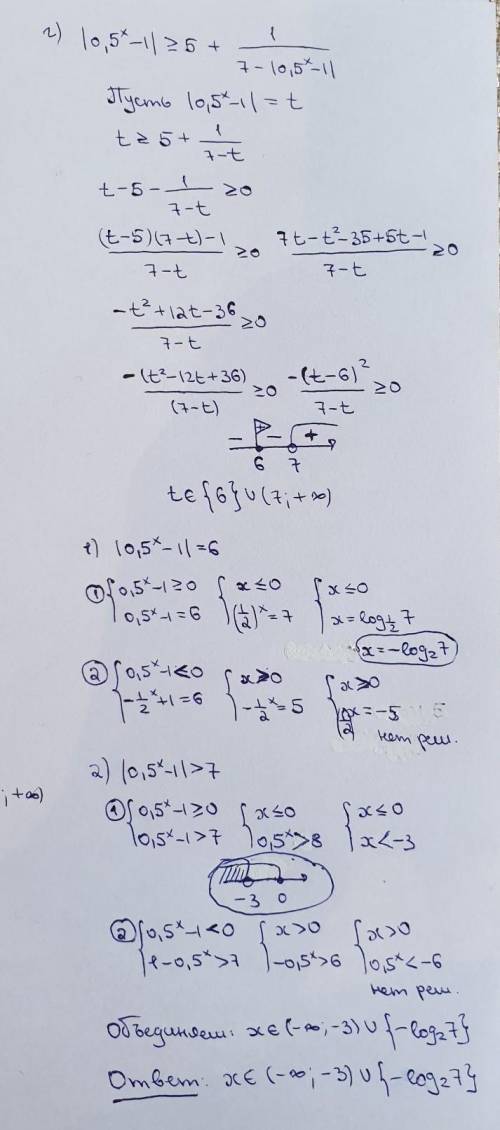 г) |0,5^x-1| ≥ 5 + 1/(7-|0,5^x-1|)
Пусть |0,5^x-1| = t
t ≥ 5 + 1/(7-t)
t-5- 1/(7-t) ≥0
((t-5)(7-t)-1)/(7-t) ≥0 (7t-t²-35+5t-1)/(7-t) ≥0
(-t²+12t-36)/(7-t) ≥0
-(t²-12t+36)/(7-t) ≥0 -(t-6)²/(7-t) ≥0
- + - +
6 7
t∈{6}∪(7;+∞)
1) |0,5^x-1|=6
① {0,5^x-1≥0 {x≤0 {x≤0
0,5^x-1=6 (1/2)^x=7 x=log_{1/2}7
x=-log₂7
② {0,5^x-1<0 {x>0 {x>0
-1/2^x+1=6 -1/2^x=5 1/2^x=-5
нет реш.
2) |0,5^x-1|>7
;+∞)
① {0,5^x-1≥0 {x≤0 {x≤0
0,5^x-1>7 0,5^x>8 x<-3
-3 0
② {0,5^x-1<0 {x>0 {x>0
1-0,5^x>7 -0,5^x>6 0,5^x<-6
нет реш.
Объединяем: x∈(-∞;-3)∪{-log₂7}
Ответ: x∈(-∞;-3)∪{-log₂7}